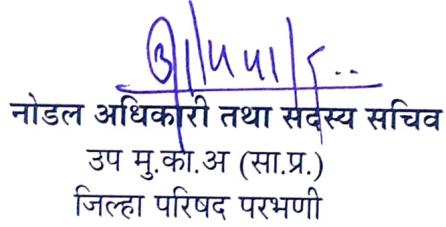 नोडल अधिकारी तथा सदस्य सचिव
उप मु.का.अ (सा.प्र.)
जिल्हा परिषद परभणी